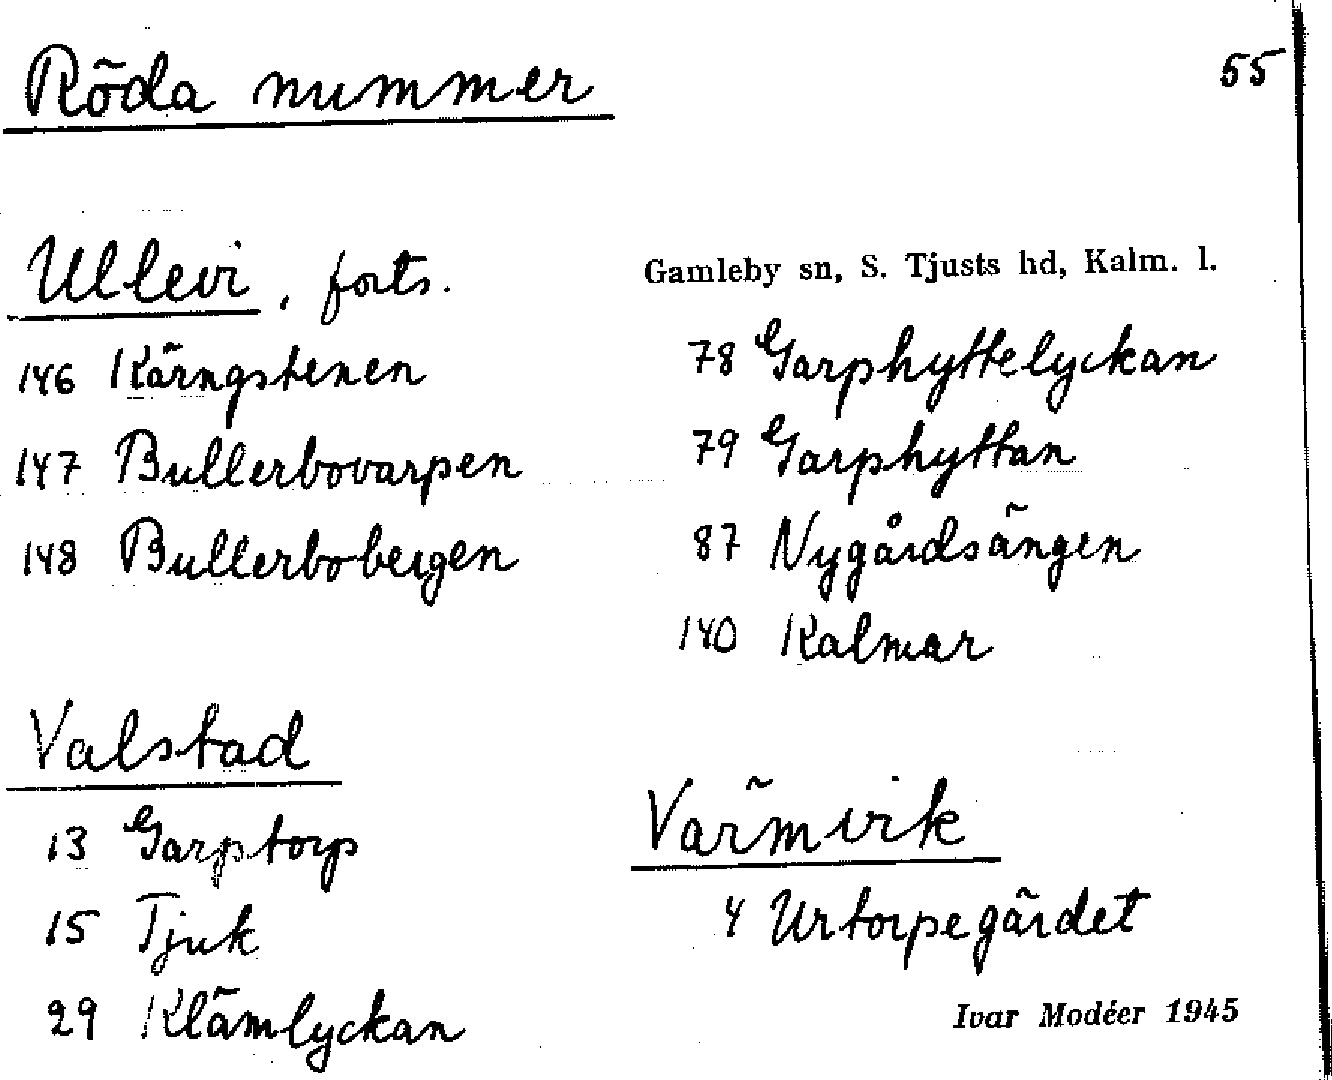 Röda nummer
55
Ullevi, forts.
146 Kärngstenen
147 Bullerbovarpen
148 Bullerbobergen
Valstad
13 Garptorp
15 Tjuk
29 Klämlyckan
Gamleby sn, S. Tjusts hd, Kalm. l.
78 Garphyttelyckan
79 Garphyttan
87 Nygårdsängen
140 Kalmar
Värmvik
4 Urtorpegärdet
Ivar Modéer 1945